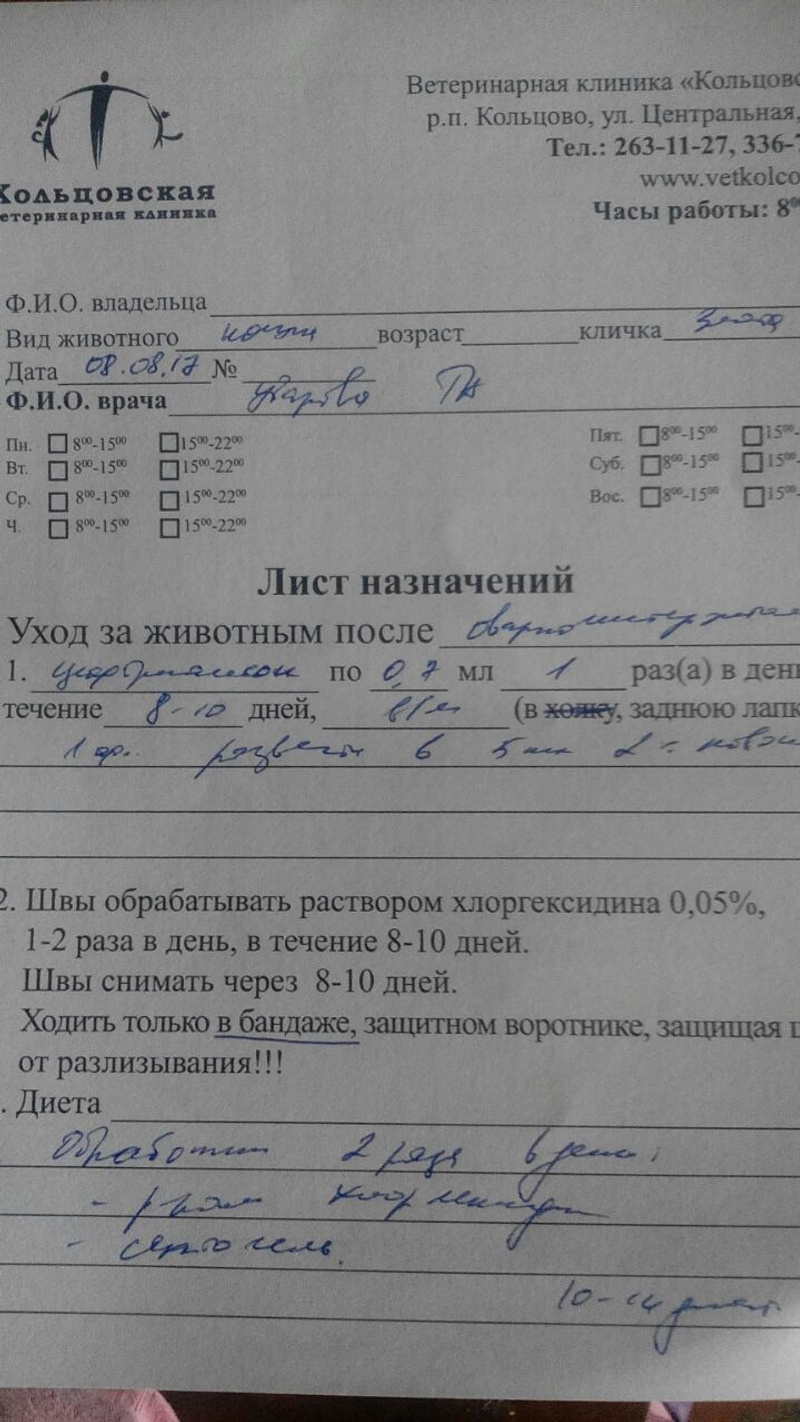 Кольцовская
ветеринарная клиника
Ветеринарная клиника «Кольцовс
р.п. Кольцово, ул. Центральная,
Тел.: 263-11-27, 336-7
www.vetkolco
Часы работы: 8⁰⁰
Ф.И.О. владельца
Вид животного кошки возраст кличка
Дата 08.08.17 №
Ф.И.О. врача
Пн. 8⁰⁰-15⁰⁰ 15⁰⁰-22⁰⁰ Пят. 8⁰⁰-15⁰⁰ 15⁰⁰-
Вт. 8⁰⁰-15⁰⁰ 15⁰⁰-22⁰⁰ Суб. 8⁰⁰-15⁰⁰ 15⁰⁰-
Ср. 8⁰⁰-15⁰⁰ 15⁰⁰-22⁰⁰ Вос. 8⁰⁰-15⁰⁰ 15⁰⁰-
Ч. 8⁰⁰-15⁰⁰ 15⁰⁰-22⁰⁰
Лист назначений
Уход за животным после
1. цефтриаксон по 0,7 мл 1 раз(а) в ден
течение 8-10 дней, в/м (в холку, заднюю лапк
1 фл. развести в 5 мл
2. Швы обрабатывать раствором хлоргексидина 0,05%,
1-2 раза в день, в течение 8-10 дней.
Швы снимать через 8-10 дней.
Ходить только в бандаже, защитном воротнике, защищая ш
от разлизывания!!!
. Диета
Обработки 2 раза в день:
- хлоргексидин
- септогель.
10-14 дней.